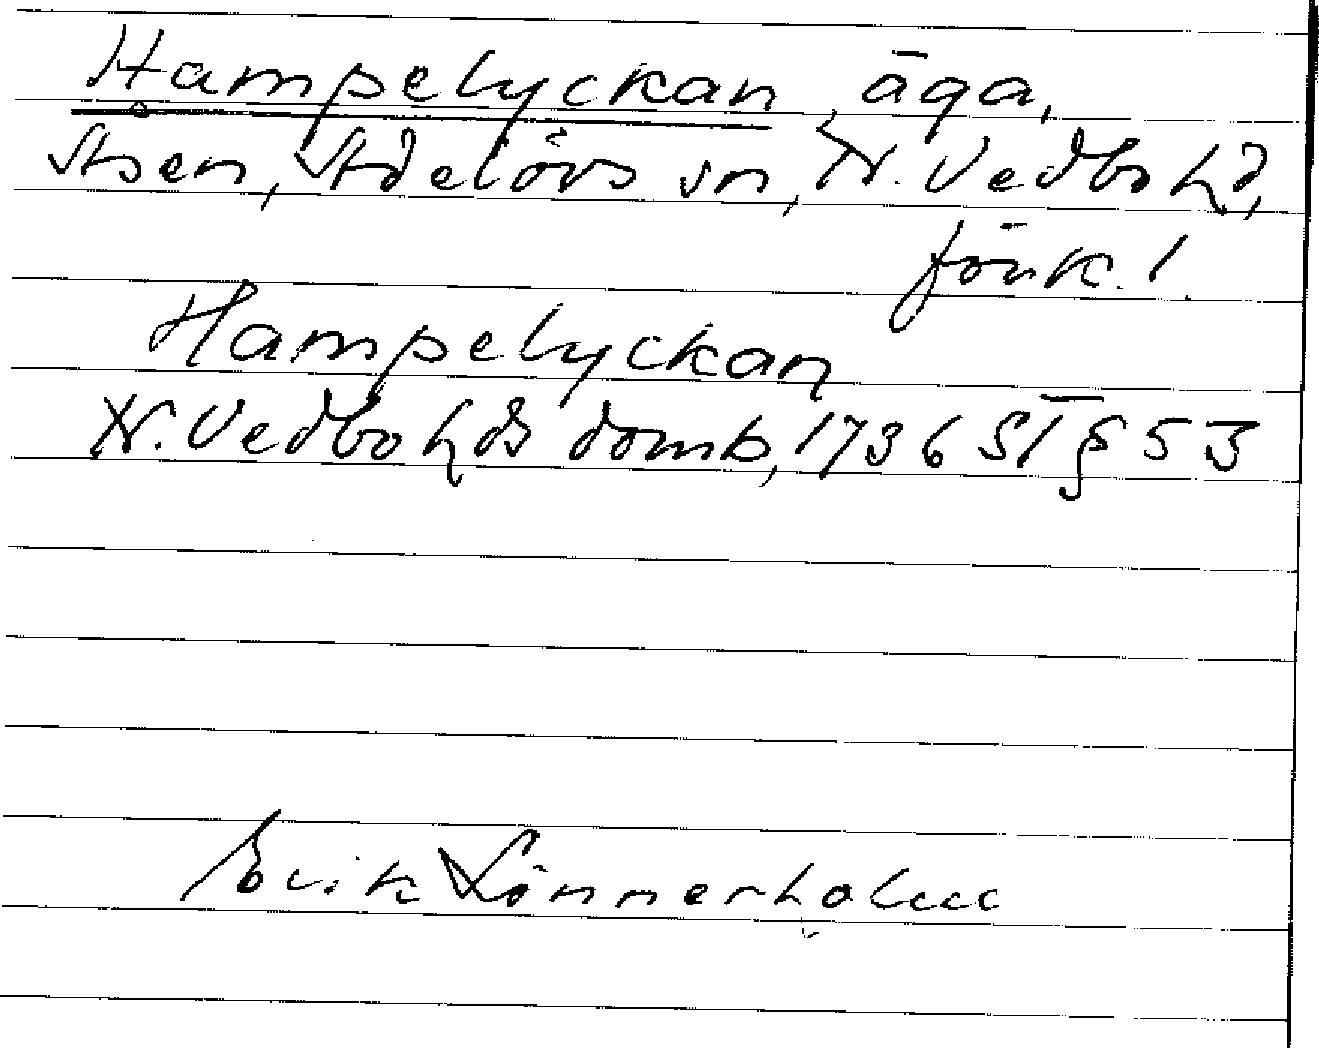 Hampelyckan, äga,
Åsen, Adelövs sn, N. Vedbo hd,
Jönk. l.
Hampelyckan
N. Vedbo hds domb, 1736 ST § 53
Erik Lönnerholm